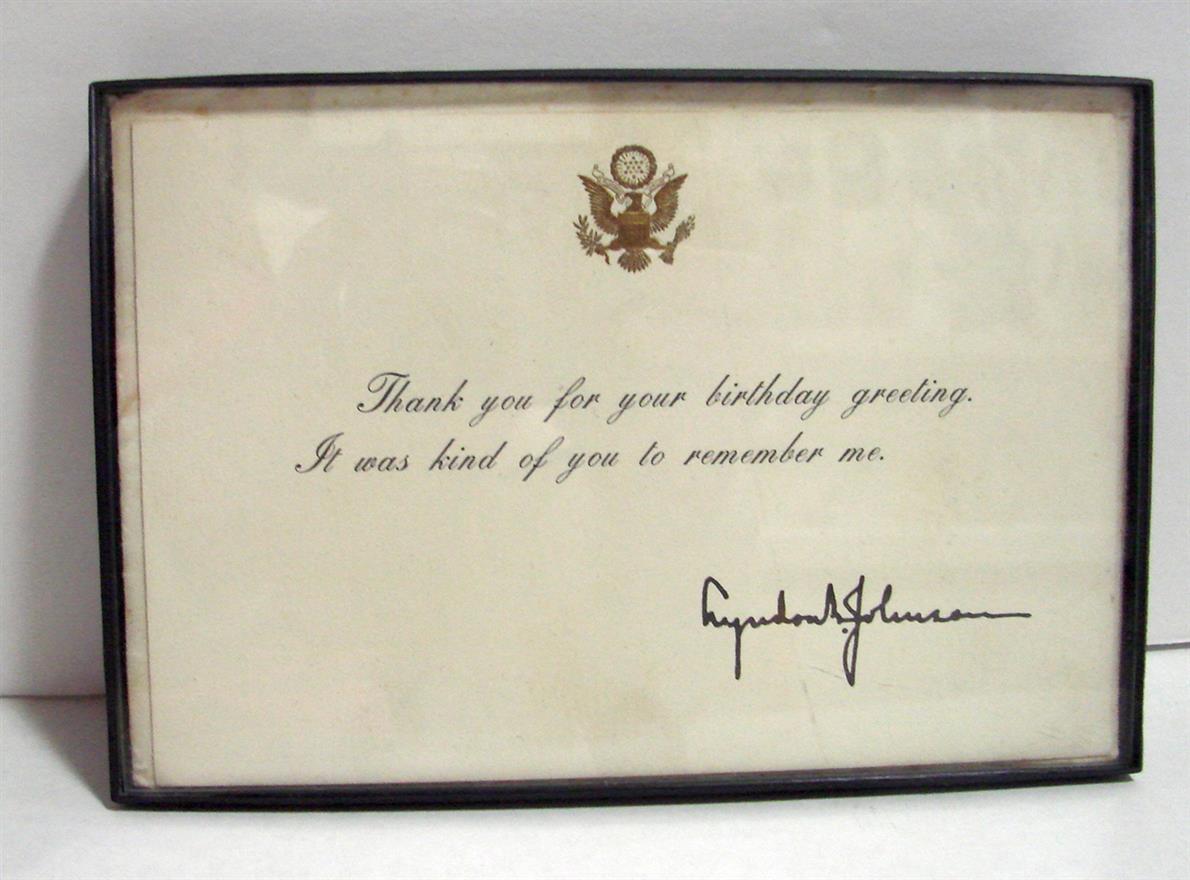 Thank you for your birthday greeting.
It was kind of you to remember me.
Lyndon B. Johnson